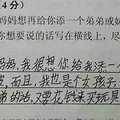 4分）
妈妈想再给你添一个弟弟或妹
你想要说的话写在横线上，
妈妈，我很想你给我添一
皮，而且，我也是个女孩子
弟的话，又要花钱来买玩具